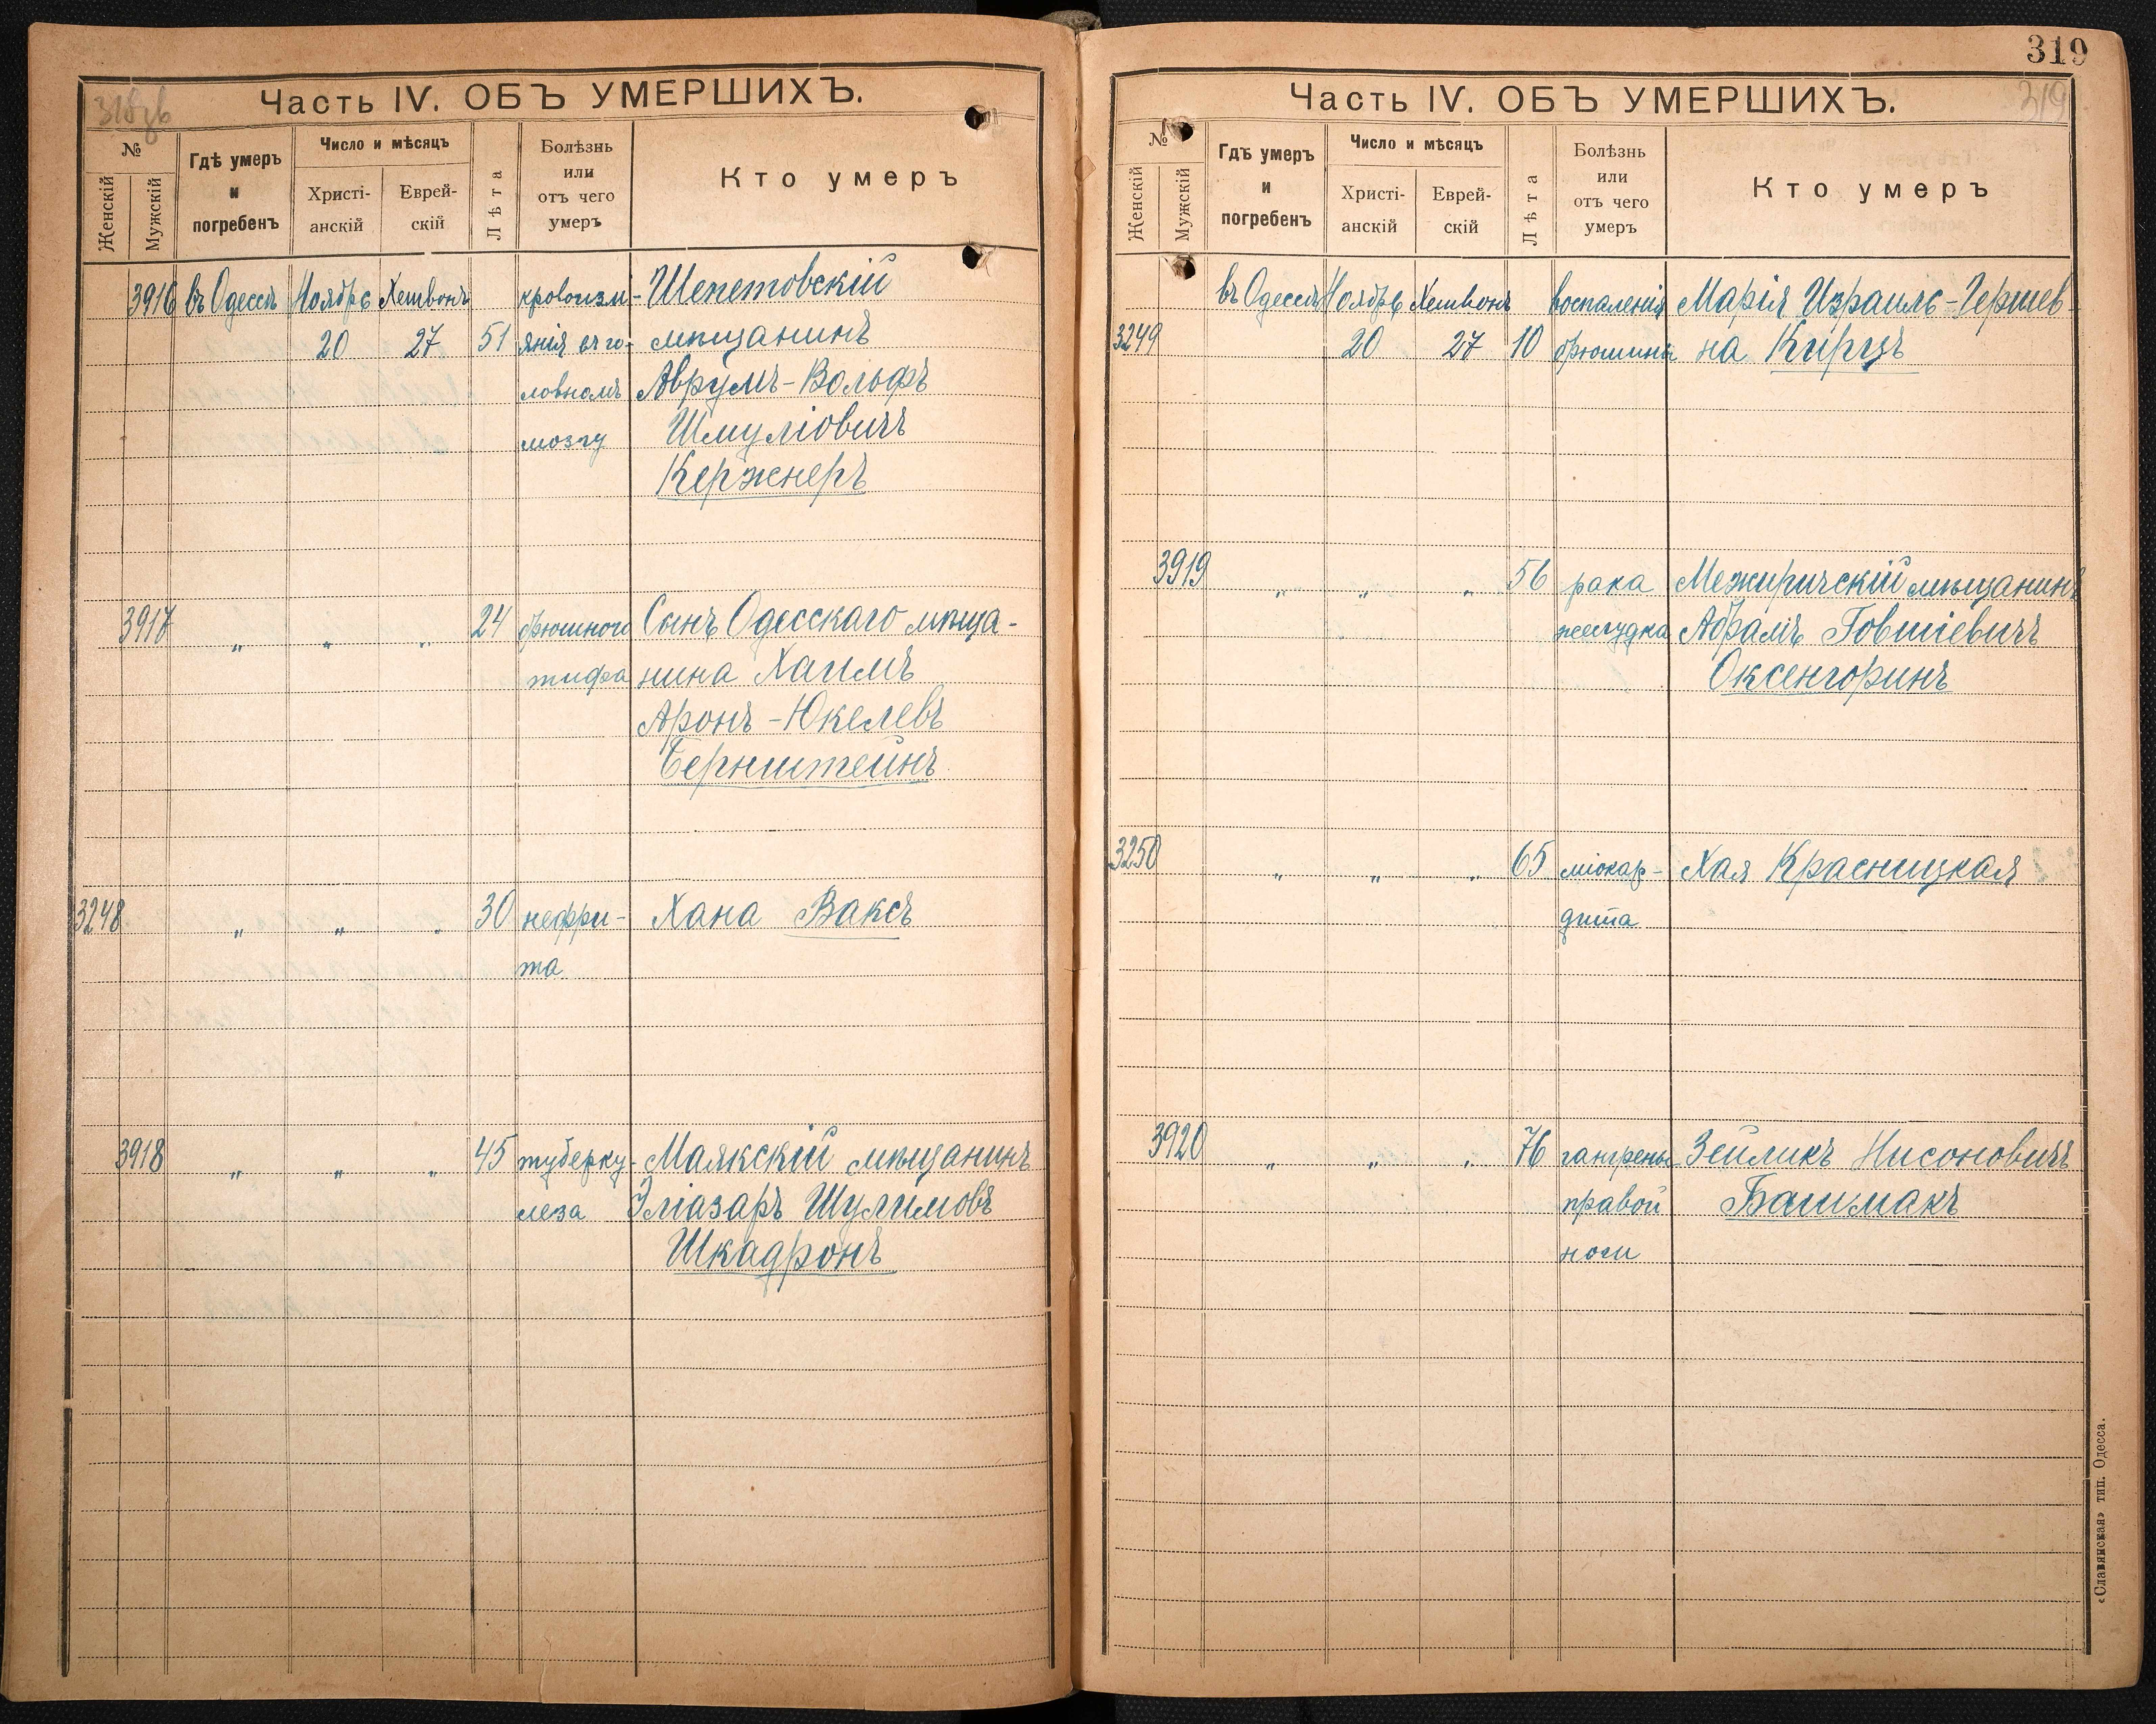 318 зв
Часть IV. ОБЪ УМЕРШИХЪ.
№
Женскій
Мужскій
Гдѣ умеръ
и
погребенъ
Число и мѣсяцъ
Христі-
анскій
Еврей-
скій
Лѣта
Болѣзнь
или
отъ чего
умеръ
Кто умеръ
3916 въ Одессѣ Ноябрь Хешвонъ кровоизлі- Шепетовскій
20 27 51 янія въ го- мѣщанинъ
ловномъ Аврумъ-Вольфъ
мозгу Шмуліовичъ
Кержнеръ
3917 " " " 24 брюшного Сынъ Одесскаго мѣща-
тифа нина Хаимъ
Аронъ-Юкелевъ
Бернштейнъ
3248 " " " 30 нефри- Хана Ваксъ
та
3918 " " " 45 туберку- Маякскій мѣщанинъ
леза Эліазаръ Шулимовъ
Шкадронъ
319
319
Часть IV. ОБЪ УМЕРШИХЪ.
№
Женскій
Мужскій
Гдѣ умеръ
и
погребенъ
Число и мѣсяцъ
Христі-
анскій
Еврей-
скій
Лѣта
Болѣзнь
или
отъ чего
умеръ
Кто умеръ
въ Одессѣ Ноябрь Хешвонъ воспаленія Марія Израиль-Гершев-
3249 20 27 10 брюшины на Кирцъ
3919 " " " 56 рака Межиричскій мѣщанинъ
желудка Абрамъ Говшіевичъ
Оксенгоринъ
3250 " " " 65 міокар- Хая Красницкая
дита
3920 " " " 76 гангрены Зейликъ Нисоновичъ
правой Башмакъ
ноги
«Славянская» тип. Одесса.